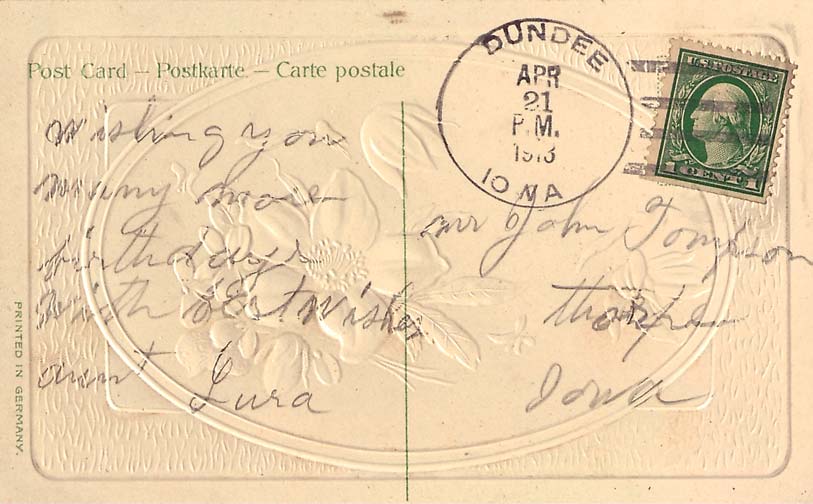 Post Card – Postkarte – Carte postale
DUNDEE
APR
21
P.M.
1913
IOWA
U.S. POSTAGE
1 CENT 1
wishing you
many more
birthdays
with best wishes
aunt Lura
mr John Tompson
thorpe
Iowa
PRINTED IN GERMANY.